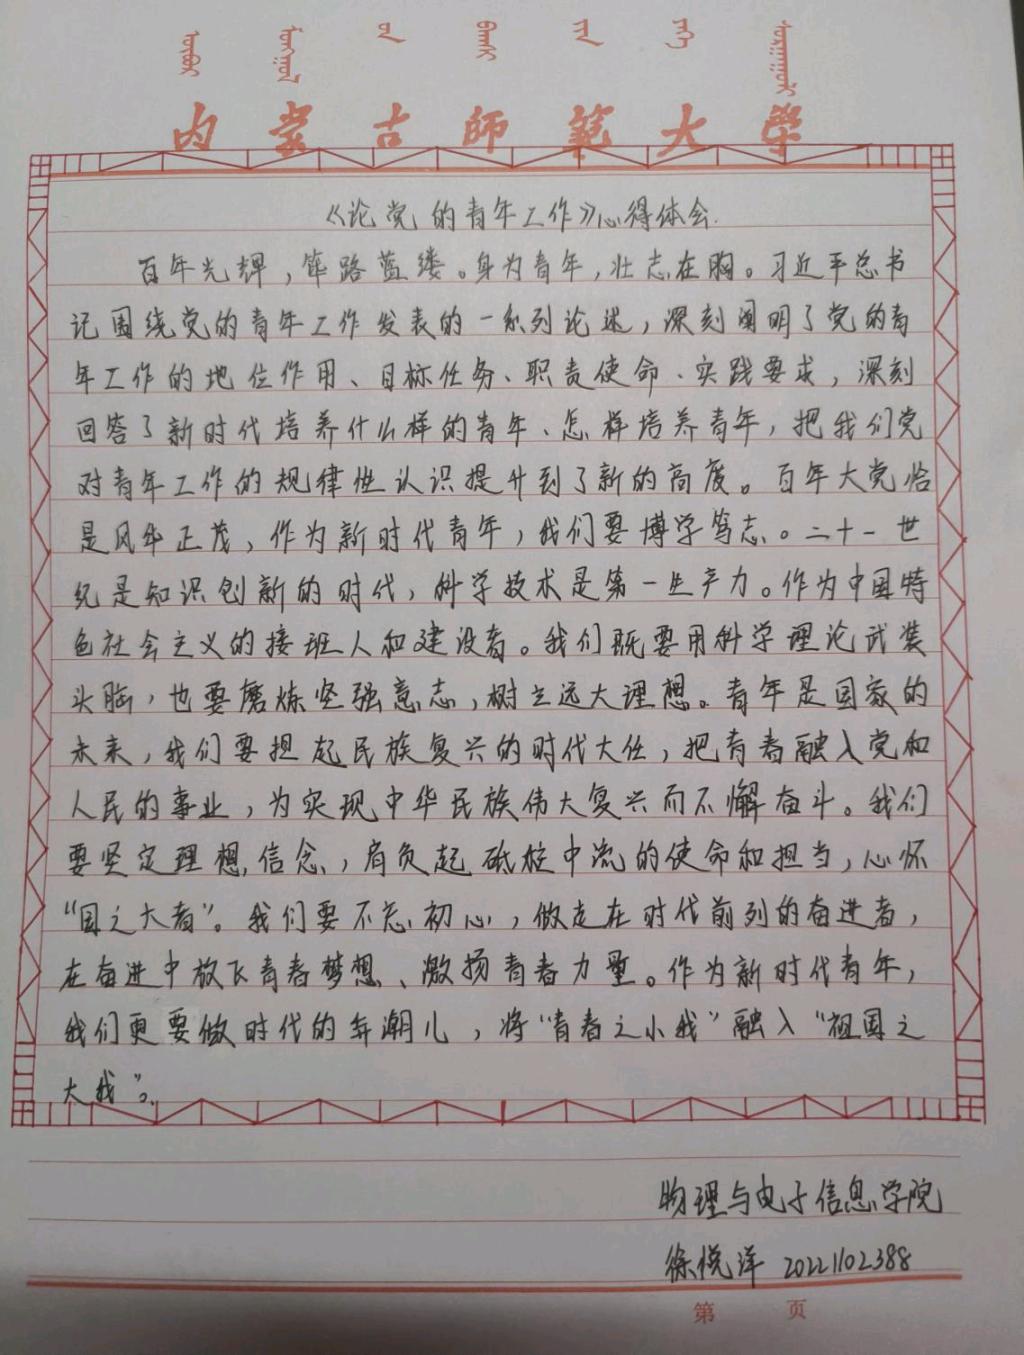 内蒙古師範大學
《论党的青年工作》心得体会.
百年光辉，筚路蓝缕。身为青年，壮志在胸。习近平总书
记围绕党的青年工作发表的一系列论述，深刻阐明了党的青
年工作的地位作用、目标任务、职责使命、实践要求，深刻
回答了新时代培养什么样的青年、怎样培养青年，把我们党
对青年工作的规律性认识提升到了新的高度。百年大党恰
是风华正茂，作为新时代青年，我们要博学笃志。二十一世
纪是知识创新的时代，科学技术是第一生产力。作为中国特
色社会主义的接班人和建设者。我们既要用科学理论武装
头脑，也要磨炼坚强意志，树立远大理想。青年是国家的
未来，我们要担起民族复兴的时代大任，把青春融入党和
人民的事业，为实现中华民族伟大复兴而不懈奋斗。我们
要坚定理想信念，肩负起砥柱中流的使命和担当，心怀
“国之大者”。我们要不忘初心，做走在时代前列的奋进者，
在奋进中放飞青春梦想、激扬青春力量。作为新时代青年，
我们更要做时代的弄潮儿，将“青春之小我”融入“祖国之
大我”。
物理与电子信息学院
徐悦洋 20221102388
第 页